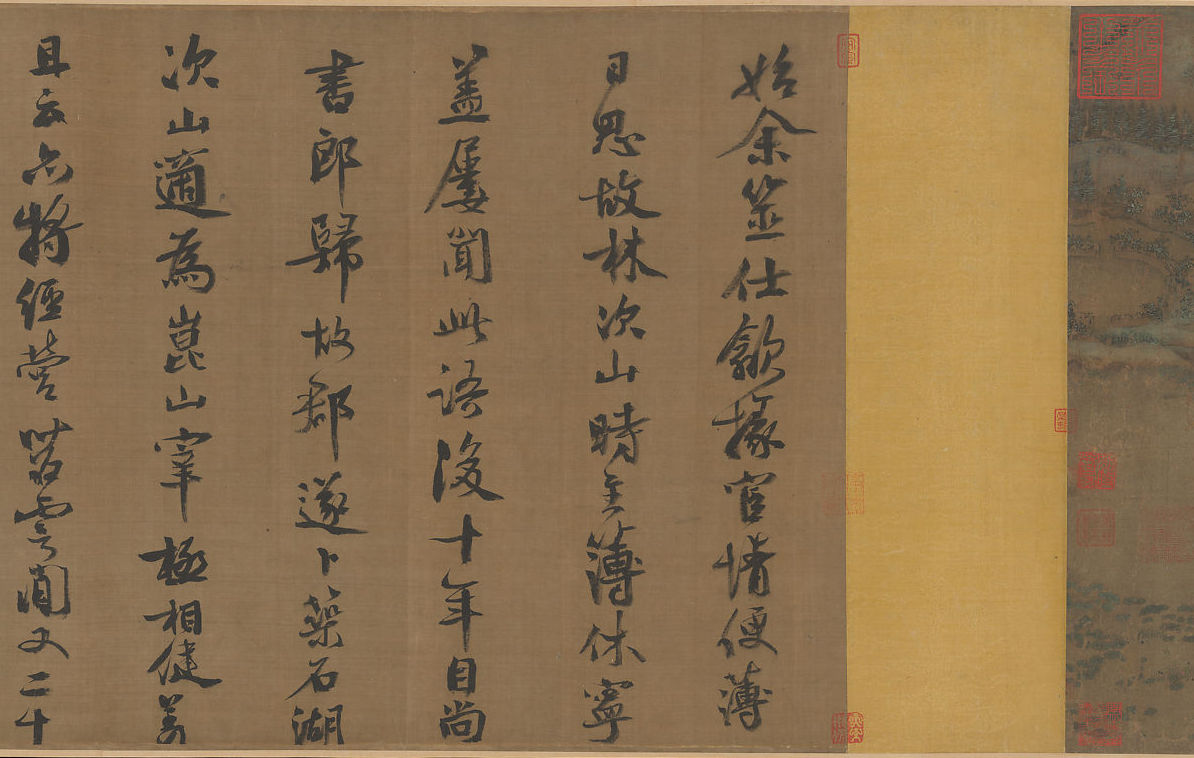 始余筮仕歙掾宦情便薄
日思故林次山時主薄休寧
盖屢聞此語後十年自尚
書郎歸故郡遂卜築石湖
次山適為崑山宰極相健羡
且云亦将經營苕霅間又二十